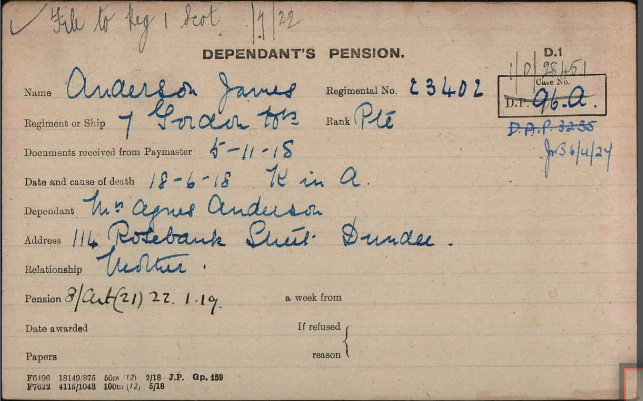 File to Reg 1 Scot /7/22
DEPENDANT'S PENSION.
D.1
1/D/28451
Name Anderson James Regimental No. 23402
Case No.
D.P. 96.A.
Regiment or Ship 7 Gordon Hrs Rank Pte
D.A.P. 3235
36/4/24
Documents received from Paymaster 5-11-18
Date and cause of death 18-6-18 K in A.
Dependant Mrs Agnes Anderson
Address 114 Rosebank Street Dundee.
Relationship Mother.
Pension 8/Art(21) 22.1.19. a week from
Date awarded If refused
Papers reason
F6496 18149/875 50m (12) 2/18 J.P. Gp. 159
F7622 4115/1043 100m (12) 5/18